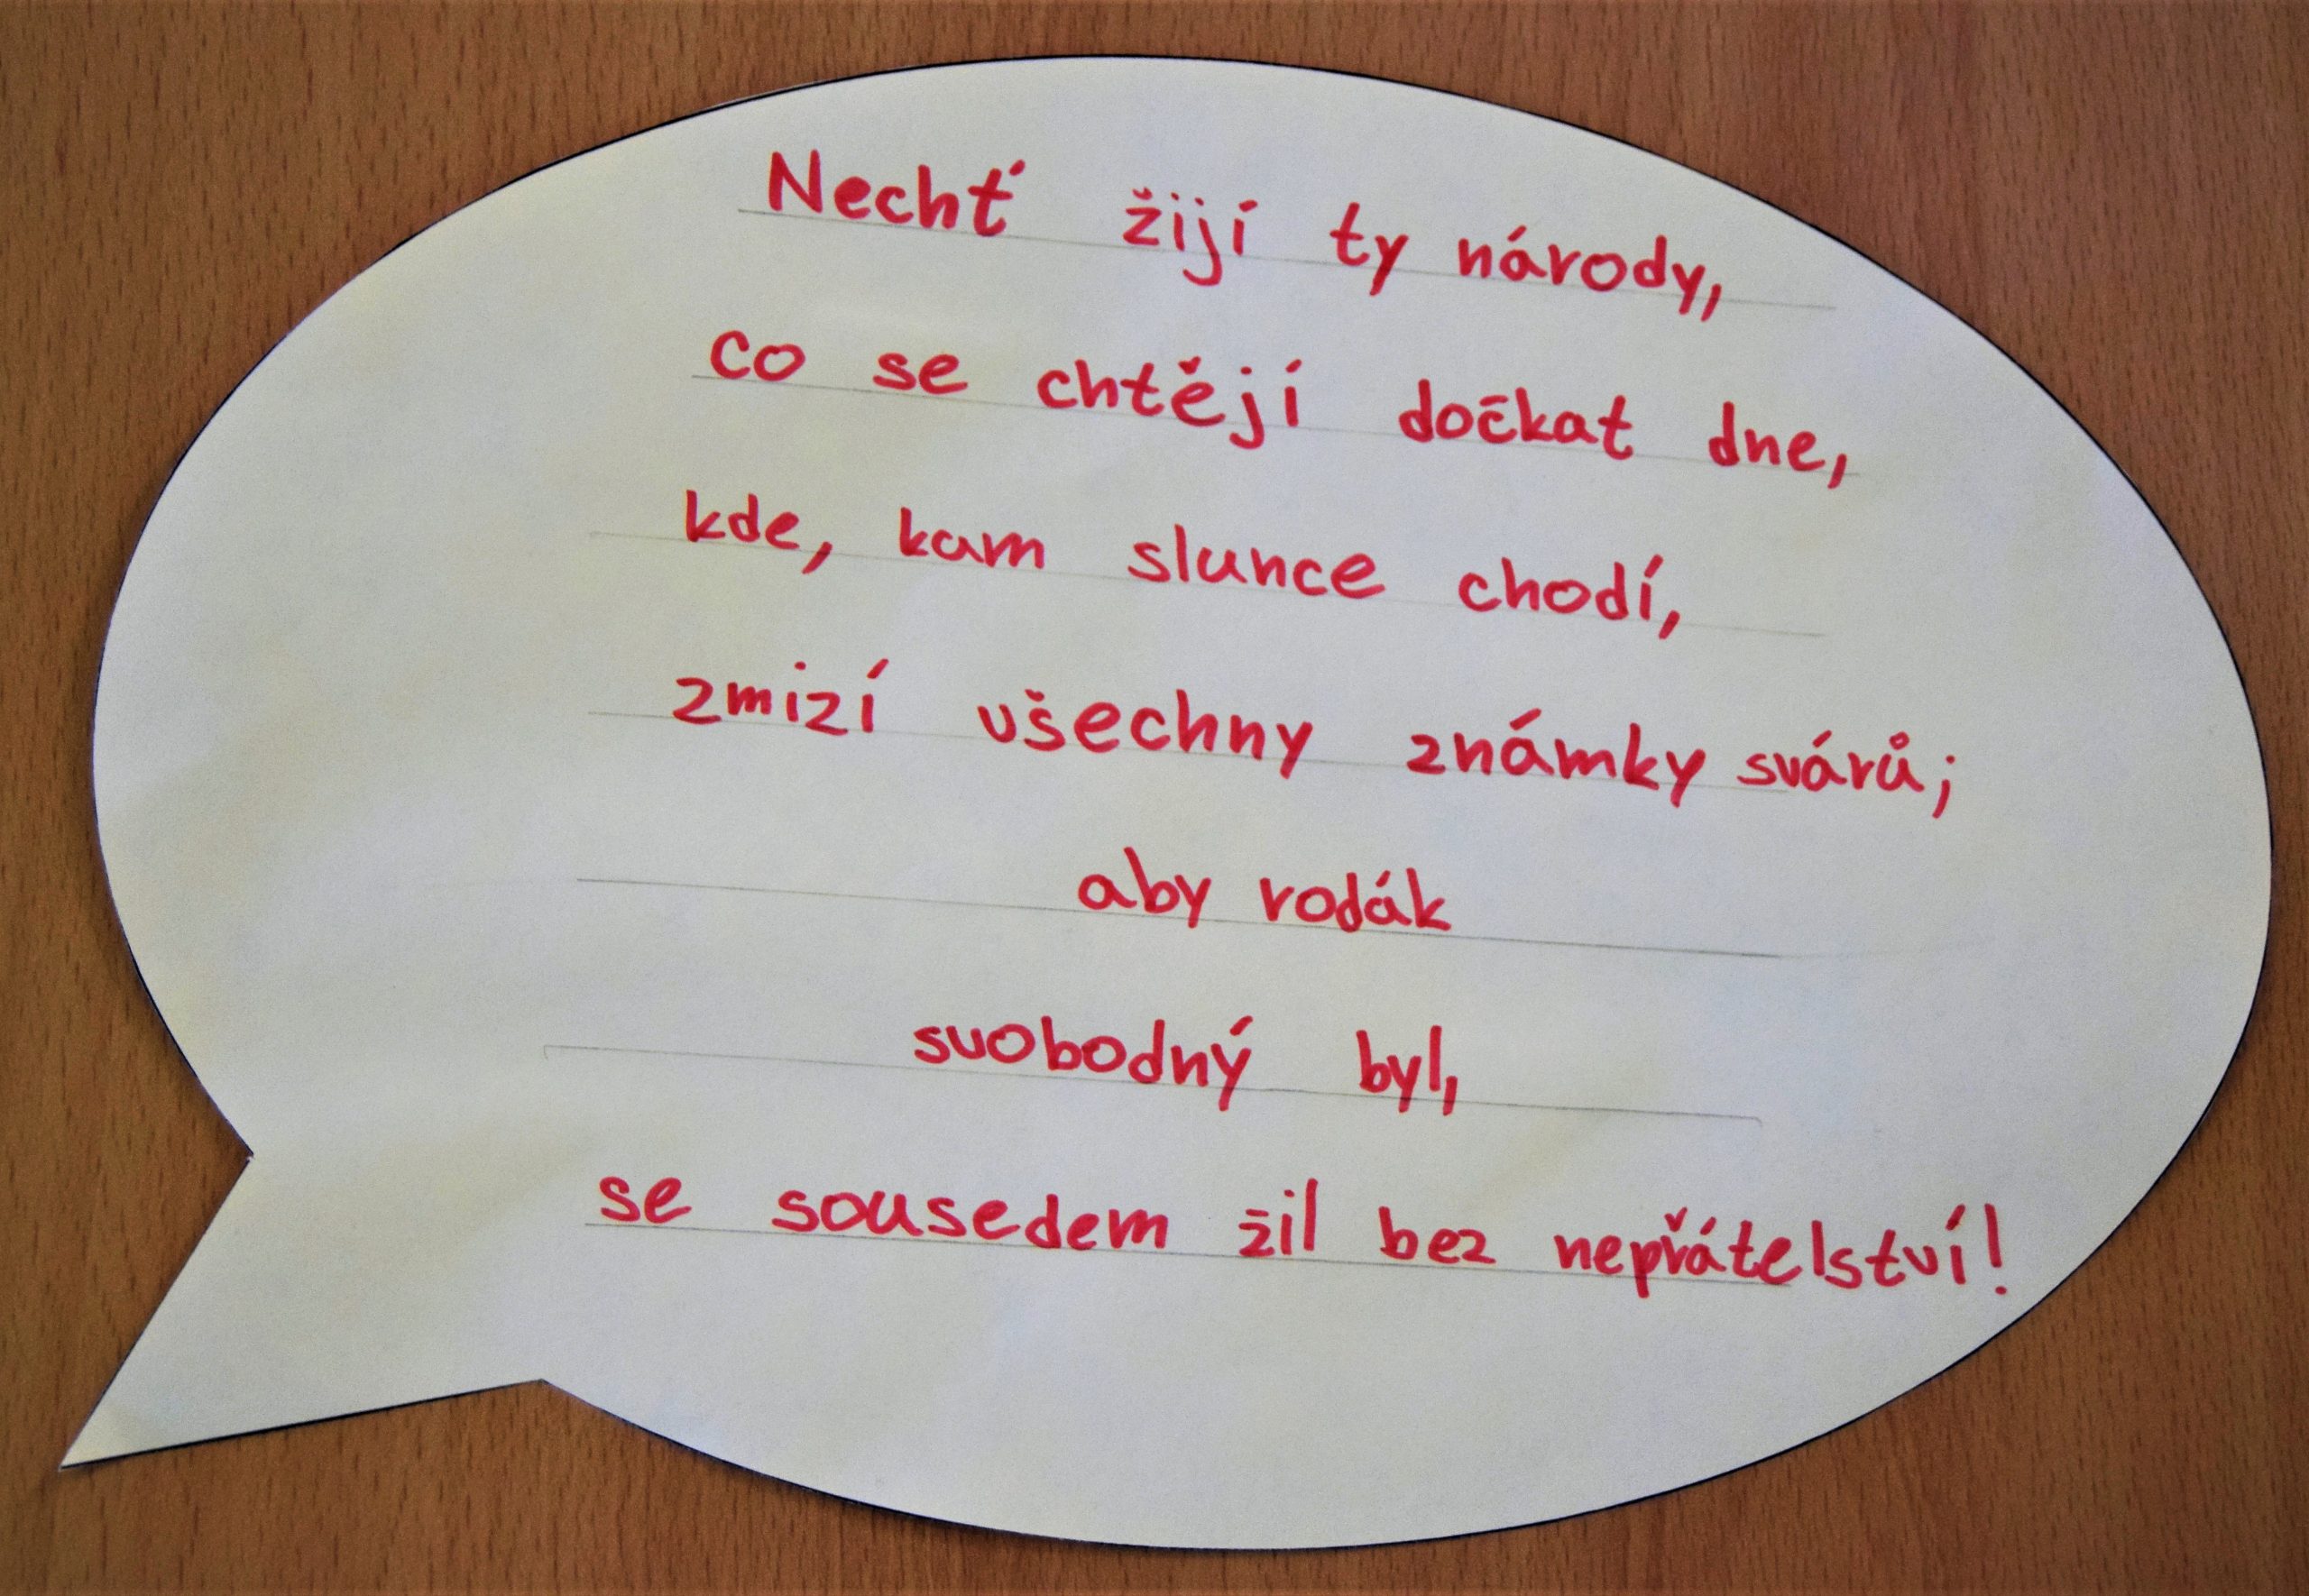 Nechť žijí ty národy,
co se chtějí dočkat dne,
kde, kam slunce chodí,
zmizí všechny známky svárů;
aby rodák
svobodný byl,
se sousedem žil bez nepřátelství!